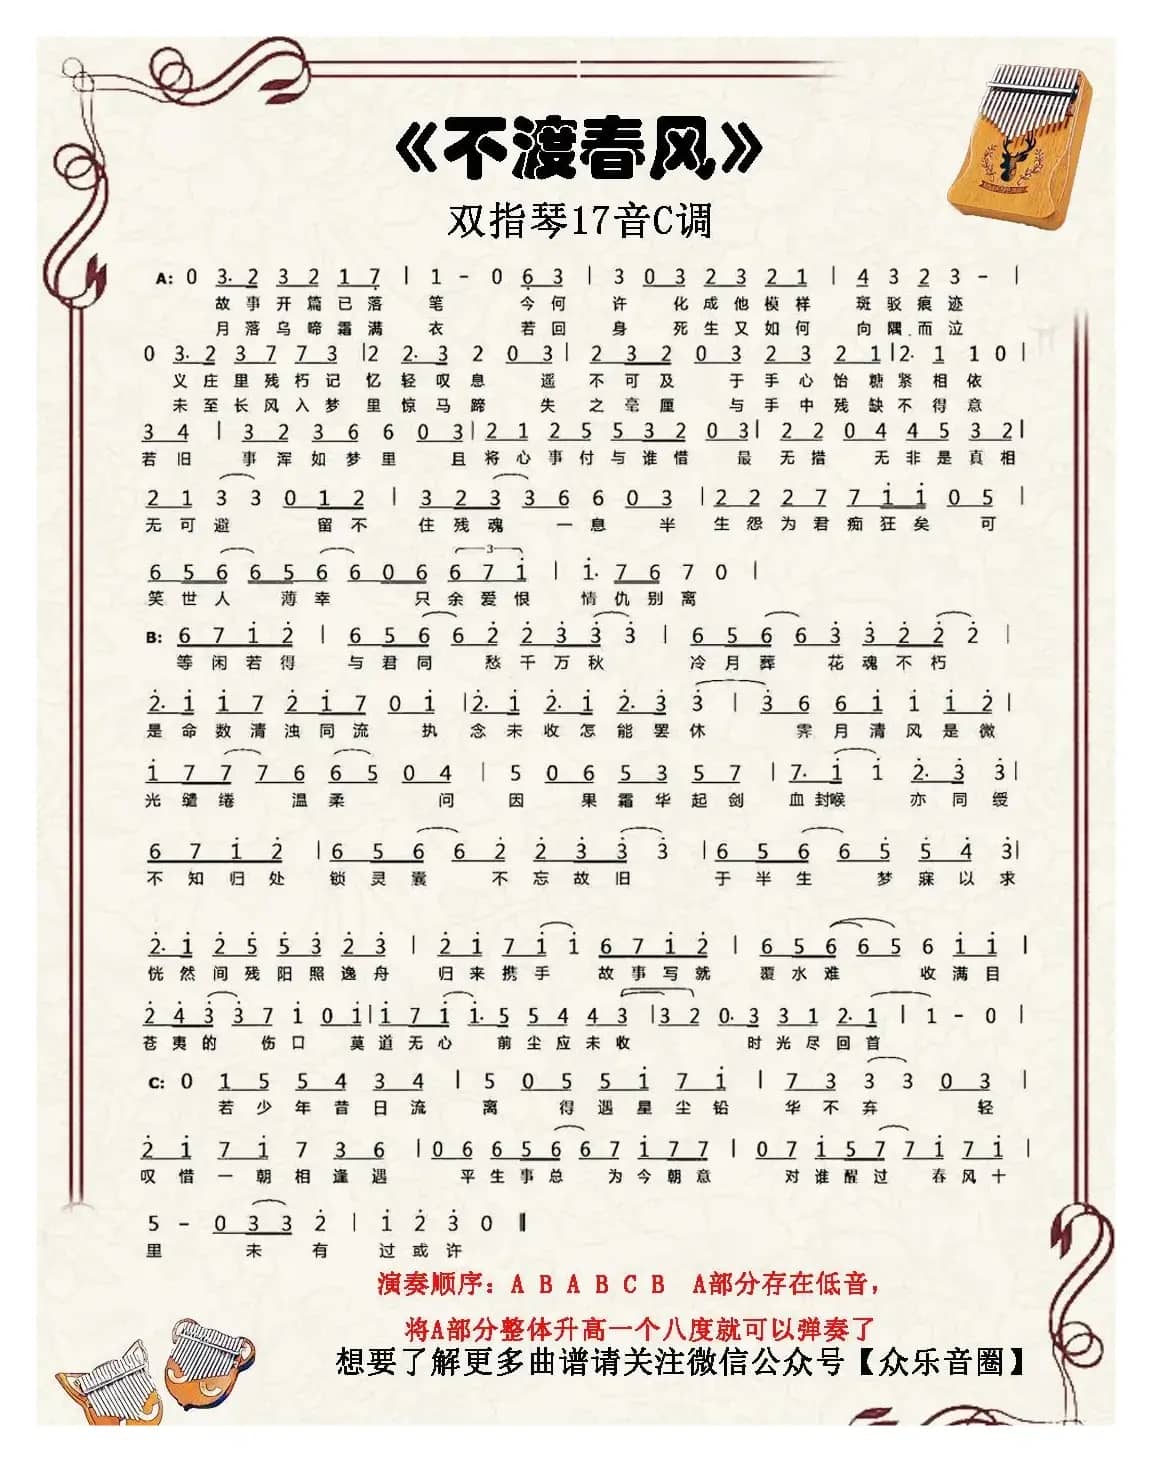 《不渡春风》
双指琴17音C调
A: 0 3·2 3 2 1 7 | 1 - 0 6 3 | 3 0 3 2 3 2 1 | 4 3 2 3 - |
故事开篇已落 笔 今何 许 化成他模样 斑驳痕迹
月落乌啼霜满 衣 若回 身 死生又如何 向隅而泣
0 3·2 3 7 7 3 | 2 2·3 2 0 3 | 2 3 2 0 3 2 3 2 1 | 2·1 1 0 |
义庄里残朽记 忆轻叹息 遥 不可及 于手心饴糖紧相依
未至长风入梦 里惊马蹄 失 之毫厘 与手中残缺不得意
3 4 | 3 2 3 6 6 0 3 | 2 1 2 5 5 3 2 0 3 | 2 2 0 4 4 5 3 2 |
若旧 事浑如梦里 且将心事付与谁惜 最 无措 无非是真相
2 1 3 3 0 1 2 | 3 2 3 3 6 6 0 3 | 2 2 2 7 7 i i 0 5 |
无可避 留不 住残魂 一息 半 生怨为君痴狂矣 可
6 5 6 6 5 6 6 0 6 6 7 i | i· 7 6 7 0 |
笑世人 薄幸 只余爱恨 情仇别离
B: 6 7 i 2 | 6 5 6 6 2 2 3 3 3 | 6 5 6 6 3 3 2 2 2 |
等闲若得 与君同 愁千万秋 冷月葬 花魂不朽
2· i i 7 2 i 7 0 i | 2· i 2· i 2· 3 3 | 3 6 6 i i i 2 |
是命数清浊同流 执 念未收怎能罢休 霁月清风是微
i 7 7 7 6 6 5 0 4 | 5 0 6 5 3 5 7 | 7· i i 2· 3 3 |
光缱绻 温柔 问 因 果霜华起剑 血封喉 亦同绶
6 7 i 2 | 6 5 6 6 2 2 3 3 3 | 6 5 6 6 5 5 4 3 |
不知归处 锁灵囊 不忘故旧 于半生 梦寐以求
2· i 2 5 5 3 2 3 | 2 i 7 i i 6 7 i 2 | 6 5 6 6 5 6 i i |
恍然间残阳照逸舟 归来携手 故事写就 覆水难 收满目
2 4 3 3 7 i 0 i | i 7 i i· 5 5 4 4 3 | 3 2 0· 3 3 1 2· 1 | 1 - 0 |
苍夷的 伤口 莫道无心 前尘应未收 时光尽回首
C: 0 1 5 5 4 3 4 | 5 0 5 5 i 7 i | 7 3 3 3 0 3 |
若少年昔日流 离 得遇星尘铅 华不弃 轻
2 i 7 i 7 3 6 | 0 6 6 5 6 6 7 i 7 7 | 0 7 i 5 7 7 i 7 |
叹惜一朝相逢遇 平生事总 为今朝意 对谁醒过 春风十
5 - 0 3 3 2 | i 2 3 0 ‖
里 未 有 过或许
演奏顺序：A B A B C B A部分存在低音，
将A部分整体升高一个八度就可以弹奏了
想要了解更多曲谱请关注微信公众号【众乐音圈】